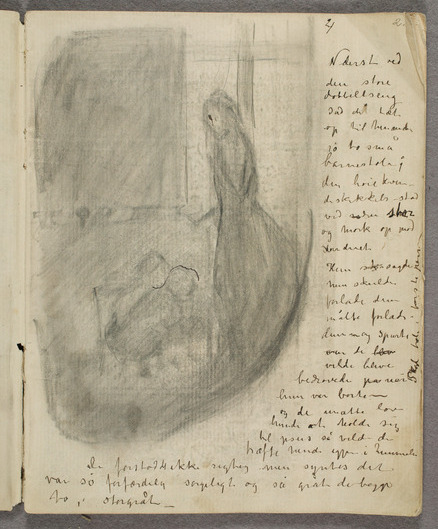 2
Nederst ved
den store
dobbeltseng
sad det tæt
op til hinanden
på to små
barnestole;
den høie kvin-
deskikkelse stod
ved siden stor
og mørk op mod
vinduet.
Hun sagde
hun skulde
forlade dem
måtte forlade
dem og spurte
om de
vilde blive
bedrøvede når
hun var borte
og de måtte love
hende at holde sig
til Jesus så vilde de
træffe hende igjen i himmelen
De forstod ikke rigtig men syntes det
var så forfærdelig sørgeligt og så gråt de begge
to, storgråt